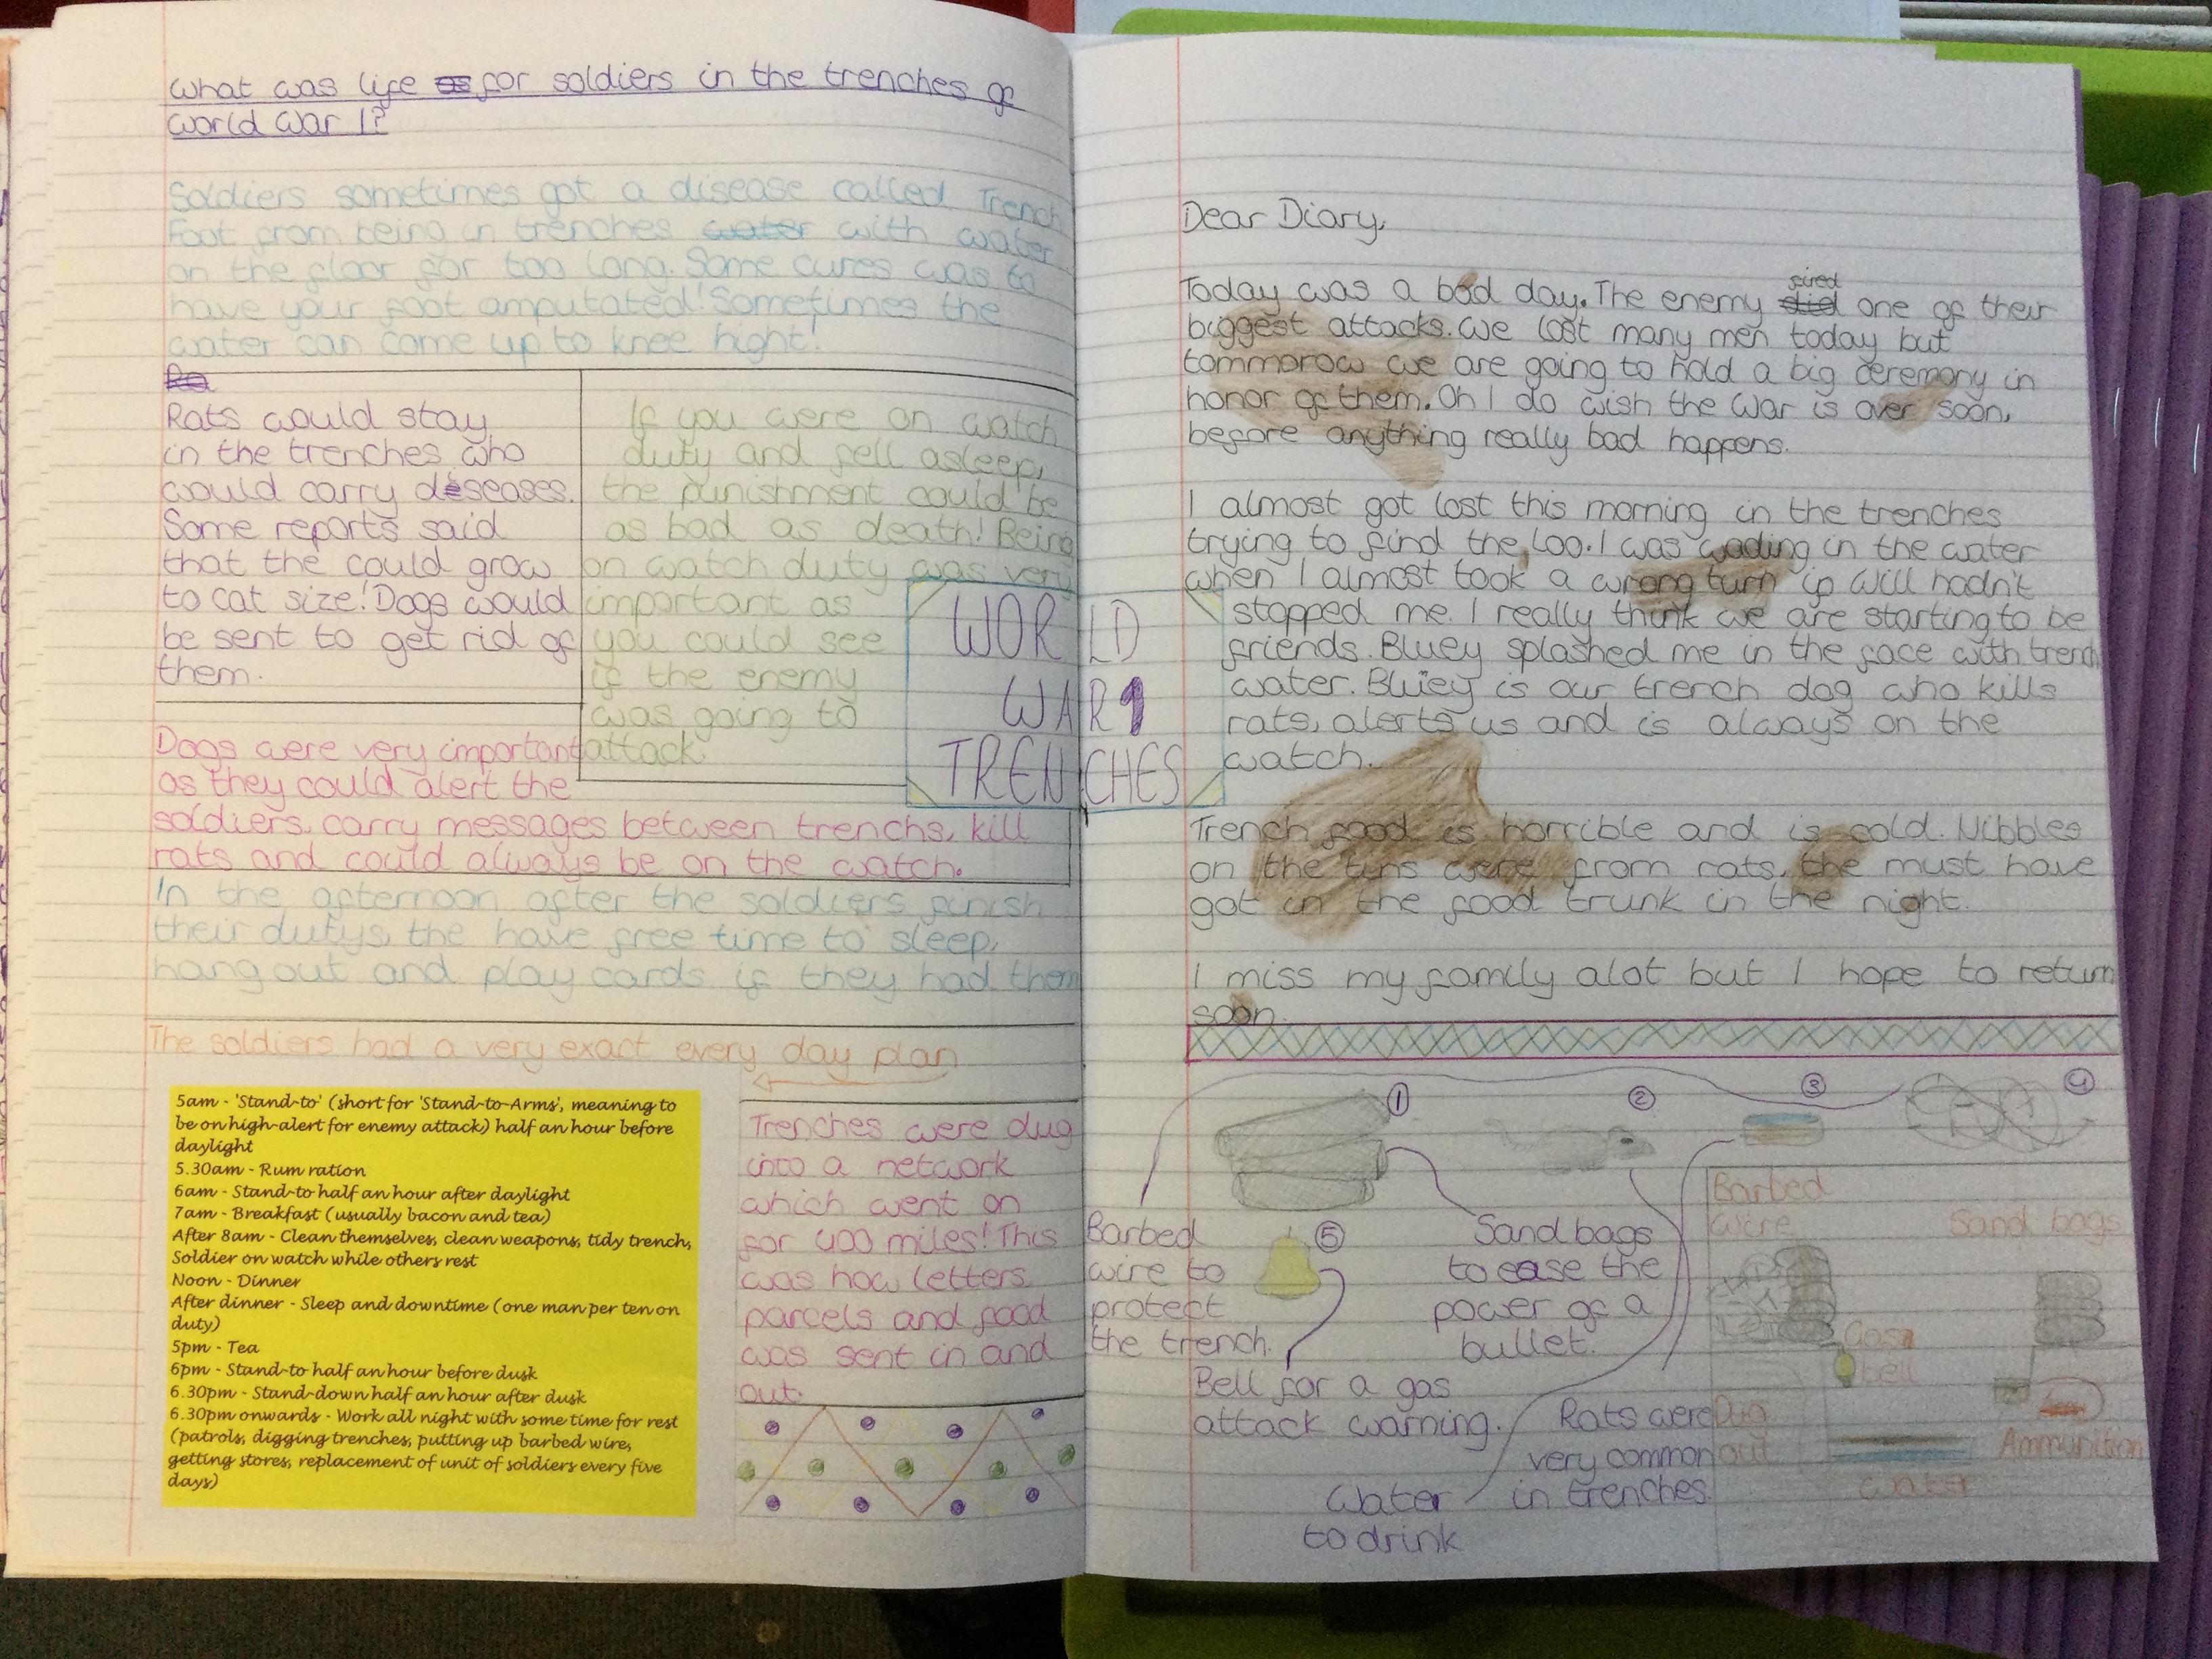 What was life for soldiers in the trenches of
World War 1?
Soldiers sometimes got a disease called Trench
Foot from being in trenches water with water
on the floor for too long. Some cures was to
have your foot amputated! Sometimes the
water can come up to knee hight!
Ra
Rats would stay
in the trenches who
would carry diseases.
Some reports said
that the could grow
to cat size! Dogs would
be sent to get rid of
them.
If you were on watch
duty and fell asleep,
the punishment could be
as bad as death! Being
on watch duty was very
important as
you could see
if the enemy
was going to
attack.
Dogs were very important
as they could alert the
soldiers, carry messages between trenchs, kill
rats and could always be on the watch.
In the afternoon after the soldiers finish
their dutys, the have free time to sleep,
hang out and play cards if they had them
The soldiers had a very exact every day plan
5am - 'Stand-to' (short for 'Stand-to-Arms', meaning to
be on high-alert for enemy attack) half an hour before
daylight
5.30am - Rum ration
6am - Stand-to half an hour after daylight
7am - Breakfast (usually bacon and tea)
After 8am - Clean themselves, clean weapons, tidy trench,
Soldier on watch while others rest
Noon - Dinner
After dinner - Sleep and downtime (one man per ten on
duty)
5pm - Tea
6pm - Stand-to half an hour before dusk
6.30pm - Stand-down half an hour after dusk
6.30pm onwards - Work all night with some time for rest
(patrols, digging trenches, putting up barbed wire,
getting stores, replacement of unit of soldiers every five
days)
Trenches were dug
into a network
which went on
for 400 miles! This
was how letters
parcels and food
was sent in and
out.
WORLD
WAR 1
TRENCHES
Dear Diary,
Today was a bad day. The enemy fired one of their
biggest attacks. We lost many men today but
tommorow we are going to hold a big ceremony in
honor of them. Oh I do wish the War is over soon,
before anything really bad happens.
I almost got lost this morning in the trenches
trying to find the loo. I was wading in the water
when I almost took a wrong turn if Will hadn't
stopped me. I really think we are starting to be
friends. Bluey splashed me in the face with trench
water. Bluey is our trench dog who kills
rats, alerts us and is always on the
watch.
Trench food is horrible and is cold. Nibbles
on the tins were from rats, the must have
got in the food trunk in the night.
I miss my family alot but I hope to return
soon.
1
2
3
4
5
Barbed
wire to
protect
the trench.
Sand bags
to ease the
power of a
bullet.
Bell for a gas
attack warning.
Rats were
very common
in trenches.
Water
to drink
Barbed
wire
Sand bags
Gas
bell
Dug
out
Ammunition
Water